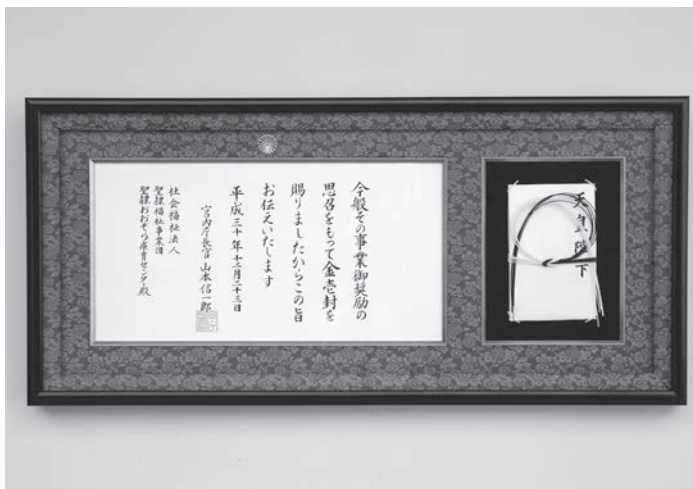 天皇陛下
今般その事業御奨励の
思召をもって金壱封を
賜りましたからこの旨
お伝えいたします
平成三十年十二月二十三日
宮内庁長官 山本信一郎
社会福祉法人
聖隷福祉事業団
聖隷おおぞら療育センター殿